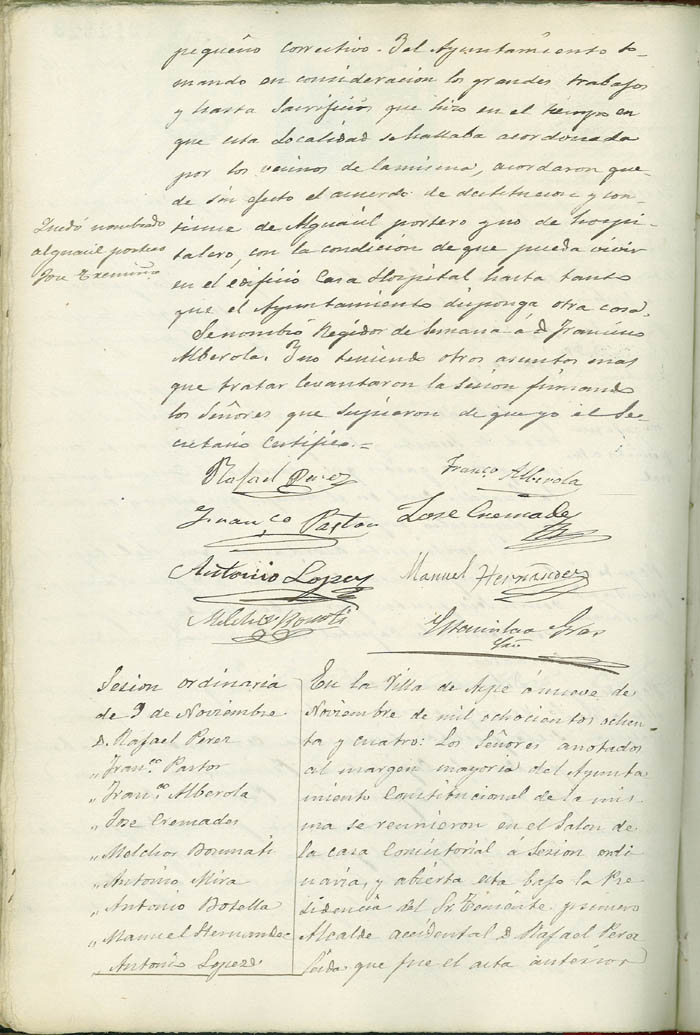 pequeño correctivo. Y el Ayuntamiento to-
mando en consideracion los grandes trabajos
y hasta sacrificios que hizo en el tiempo en
que esta Localidad se hallaba acordonada
por los vecinos de la misma, acordaron que-
de sin efecto el acuerdo de destitucion y con-
tinue de Alguacil portero y no de hospi-
talero, con la condicion de que pueda vivir
en el edificio Casa Hospital hasta tanto
que el Ayuntamiento disponga otra cosa.
Quedó nombrado
alguacil portero
Jose
Se nombró Regidor de Semana á D. Francisco
Alberola. Y no teniendo otros asuntos mas
que tratar levantaron la sesion firmando
los Señores que supieron de que yo el Se-
cretario Certifico.=
Rafael Perez
Franco Alberola
Franco Pastor
Jose Cremades
Antonio Lopez
Manuel Hernández
Melchor Bonmati
Estanislao Gras
Srio
Sesion ordinaria
de 9 de Noviembre
D. Rafael Perez
" Franco. Pastor
" Franco. Alberola
" Jose Cremades
" Melchor Bonmati
" Antonio Mira
" Antonio Botella
" Manuel Hernandez
Antonio Lopez
En la Villa de Aspe á nueve de
Noviembre de mil ochocientos ochen-
ta y cuatro: Los Señores anotados
al margen mayoria del Ayunta
miento Constitucional de la mis-
ma se reunieron en el Salon de
la casa Consistorial á Sesion ordi
naria, y abierta esta bajo la Pre-
sidencia del Sr. Teniente primero
Alcalde accidental D. Rafael Perez
leida que fue el acta anterior